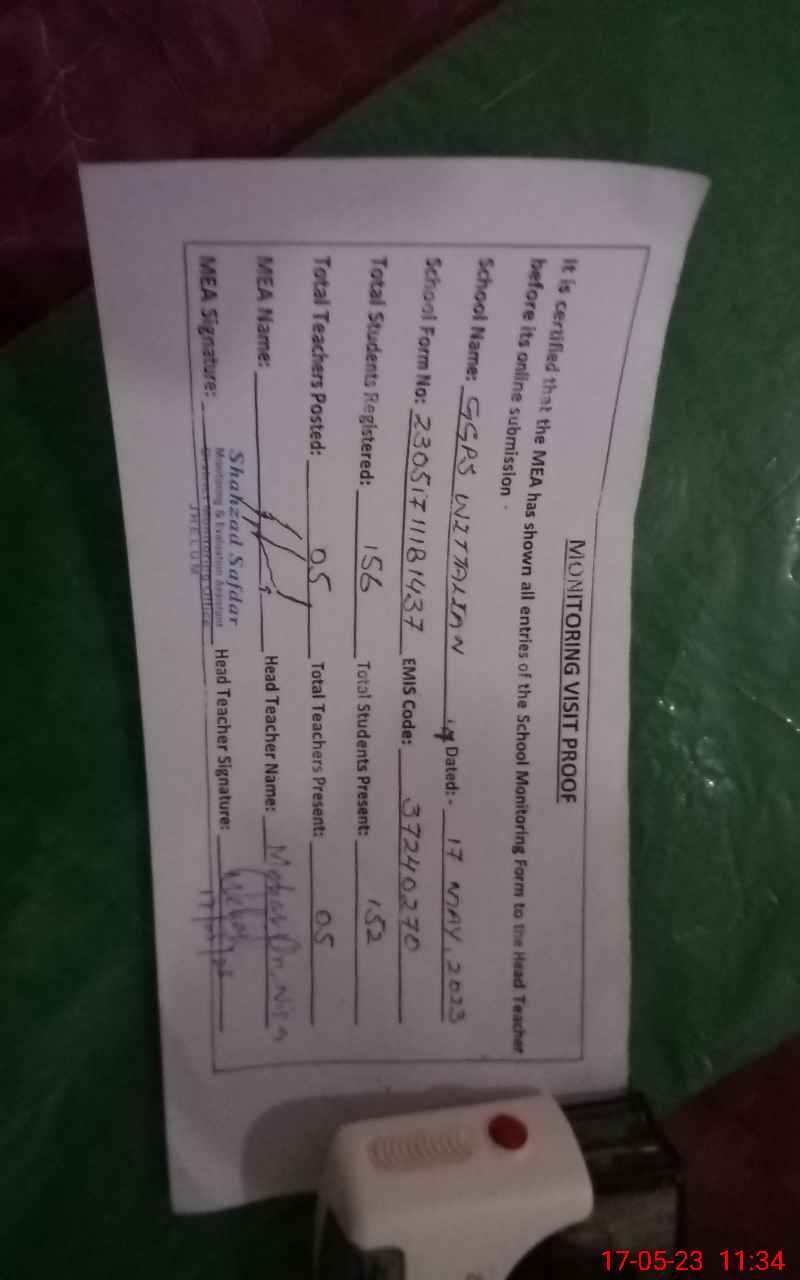 MONITORING VISIT PROOF
It is certified that the MEA has shown all entries of the School Monitoring Form to the Head Teacher
before its online submission -
School Name: GGPS WITTALIAN Dated: - 17 MAY, 2023
School Form No: 2305171118 1437 EMIS Code: 37240270
Total Students Registered: 156 Total Students Present: 152
Total Teachers Posted: 05 Total Teachers Present: 05
MEA Name: Head Teacher Name:
MEA Signature: Head Teacher Signature:
Shahzad Safdar
Monitoring & Evaluation Assistant
District Monitoring Office
JHELUM
17-05-23 11:34